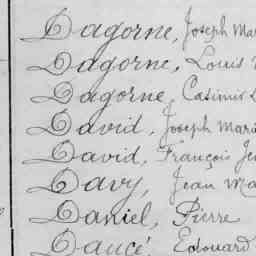 Dagorne, Joseph Mar
Dagorne, Louis
Dagorne, Casimir
David, Joseph Mari
David, François Je
Davy, Jean Ma
Daniel, Pierre
Daucé, Edouard